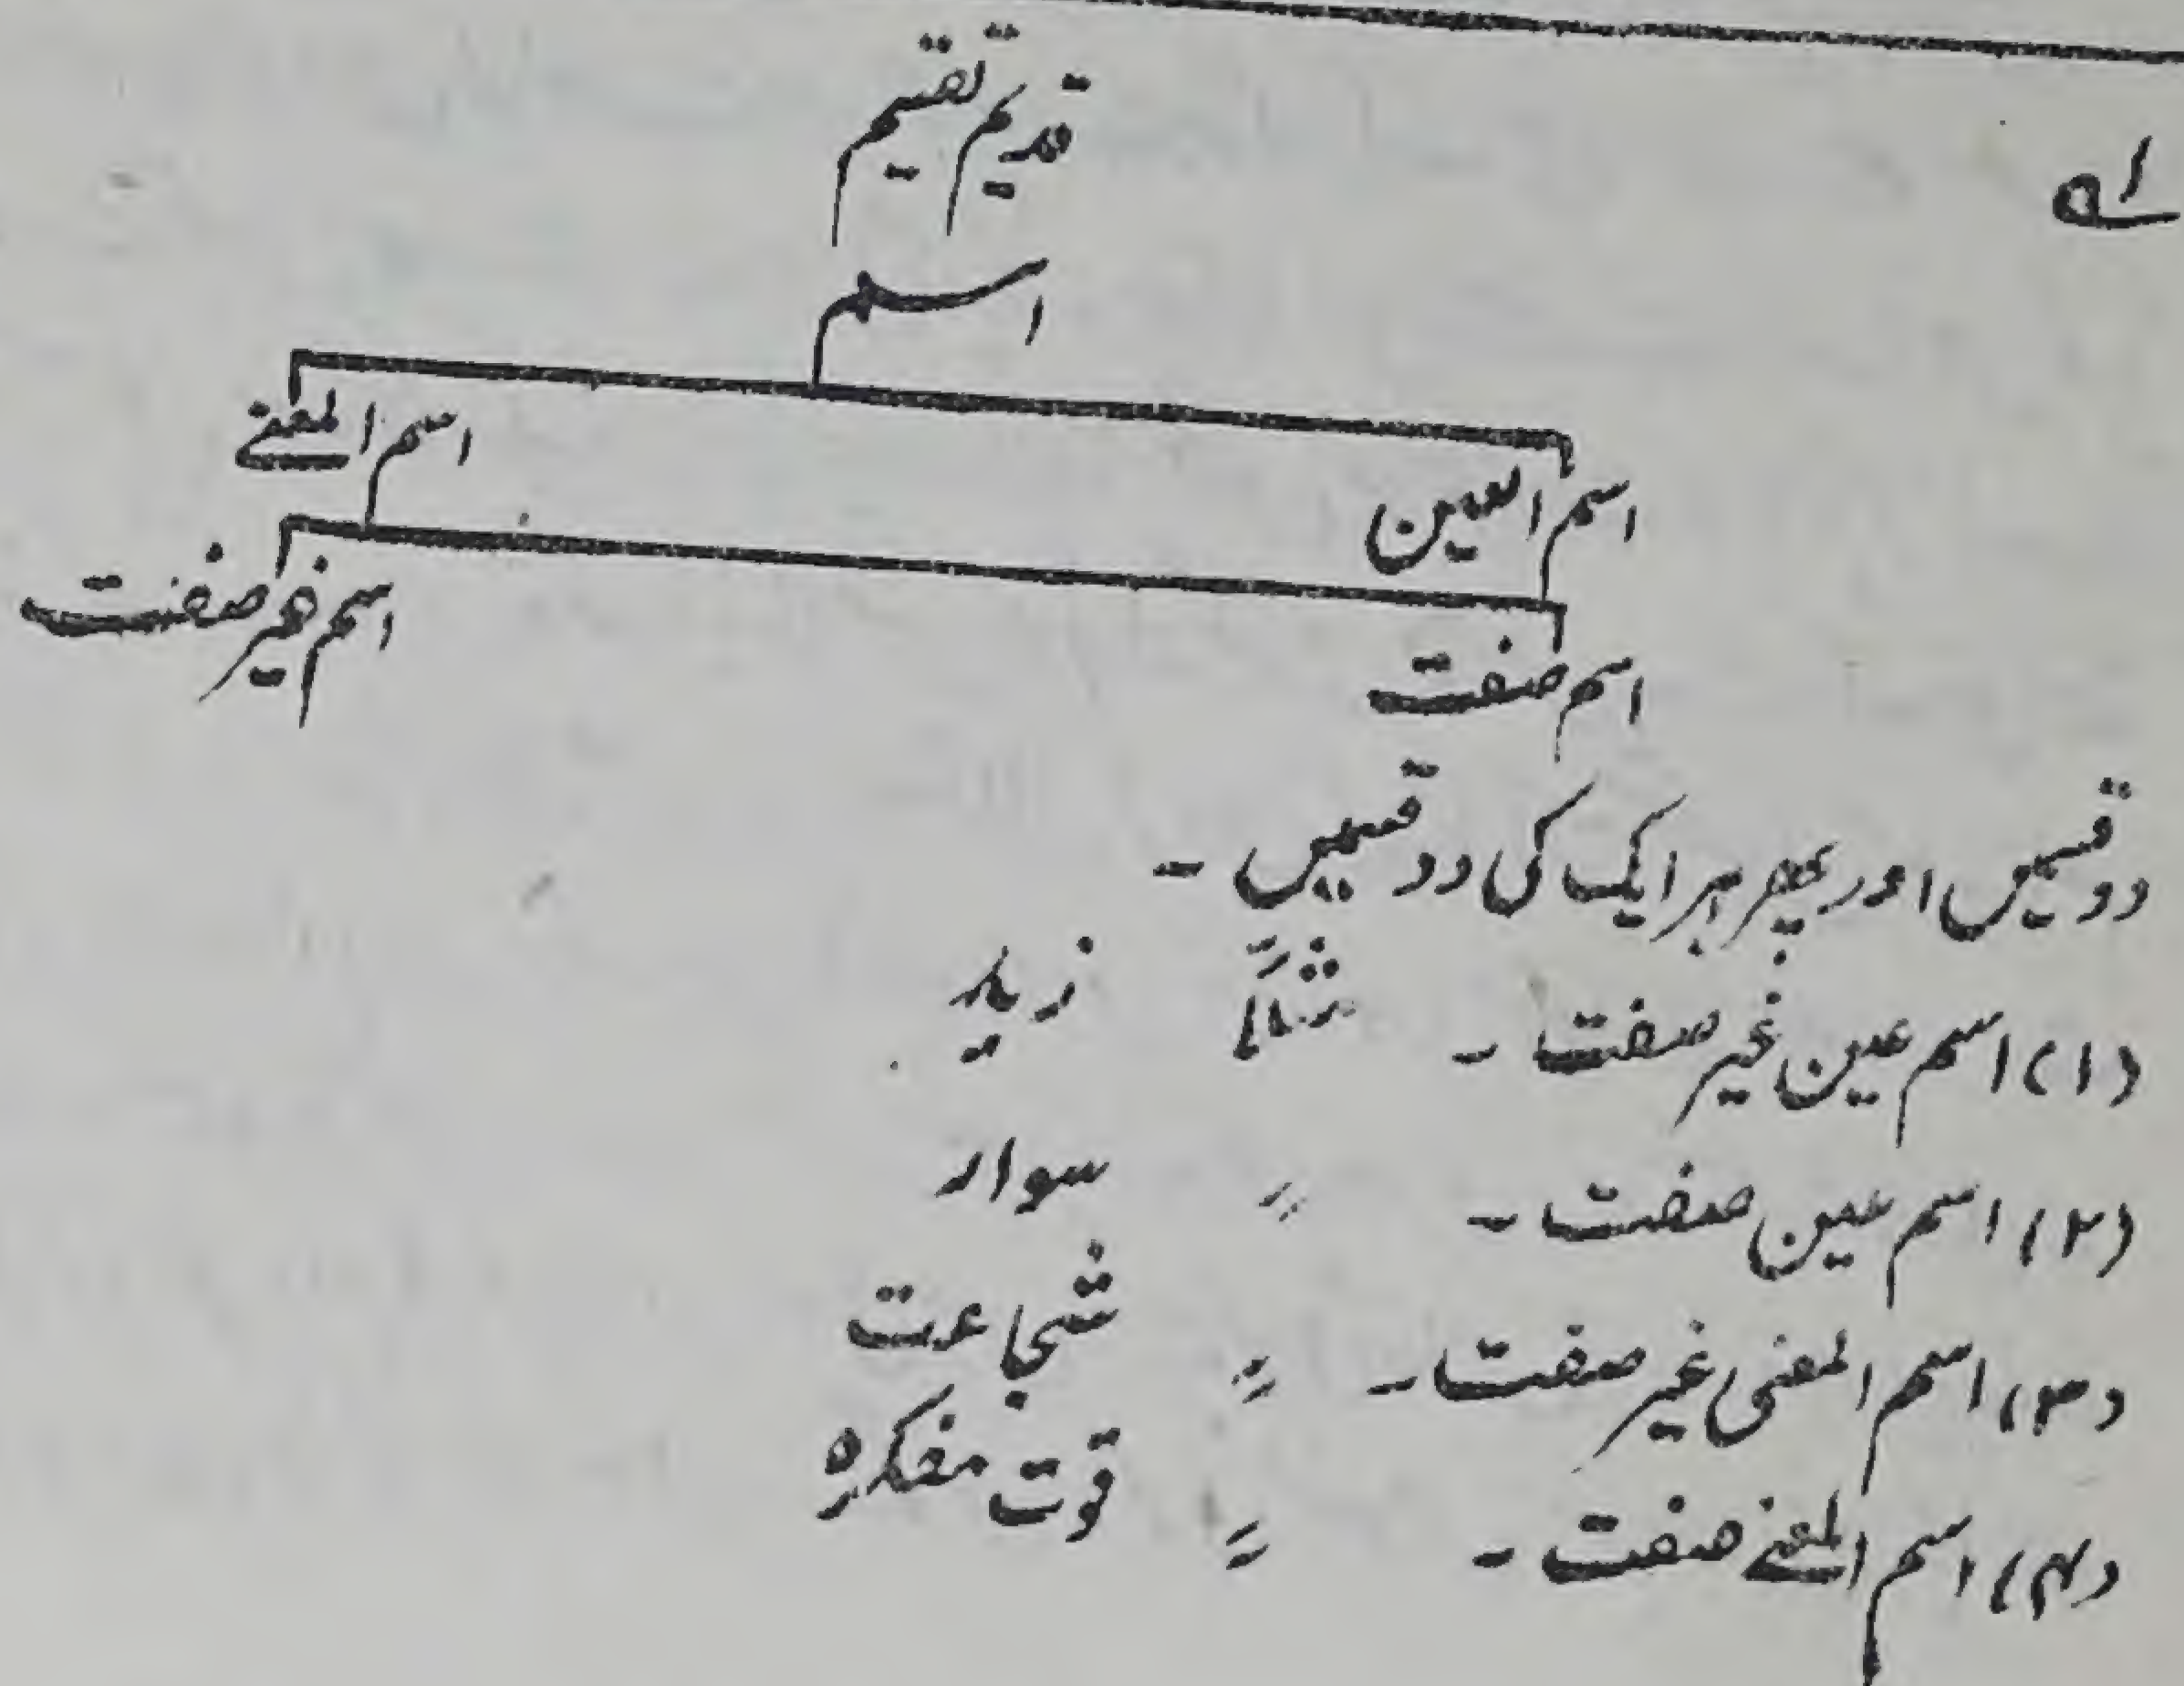 ۱ے
قدیم تقسیم
اسم
اسم العین اسم المعنے
اسم صفت اسم غیر صفت
دو قسمیں اور پھر ہر ایک کی دو قسمیں ۔
(۱) اسم عین غیر صفت ۔ مثلًا زید
(۲) اسم عین صفت ۔ " سوار
(۳) اسم المعنی غیر صفت ۔ " شجاعت
(۴) اسم المعنے صفت ۔ " قوت مفکرہ